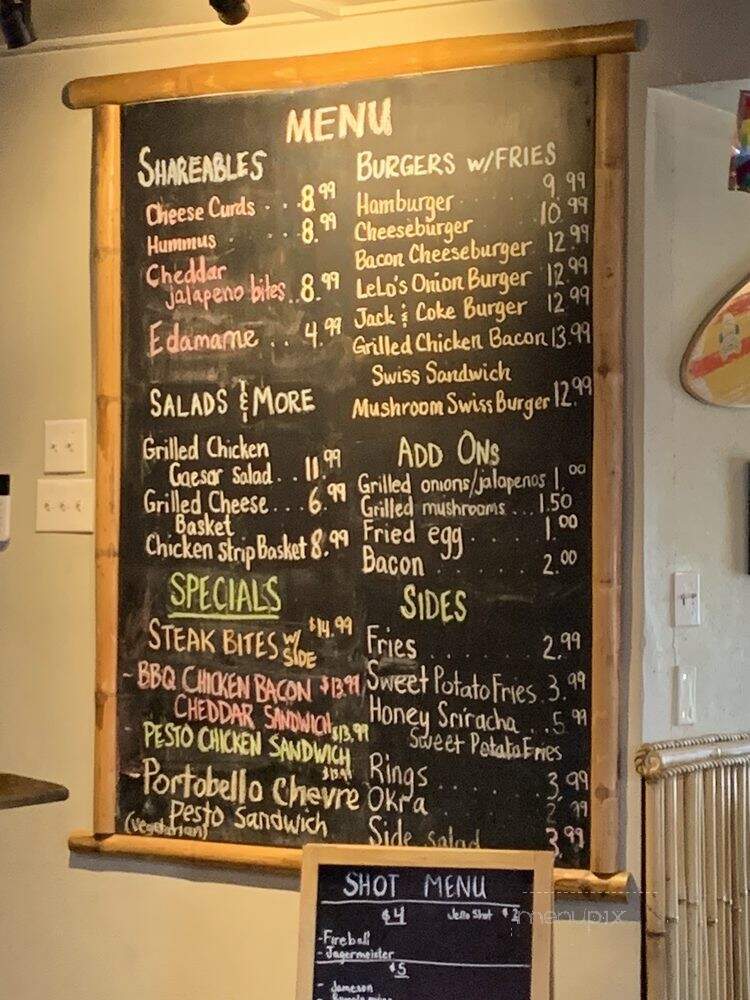 MENU
SHAREABLES
Cheese Curds . . . 8.99
Hummus . . . 8.99
Cheddar
jalapeno bites . . 8.99
Edamame . . . 4.99
SALADS & MORE
Grilled Chicken
Caesar Salad . . 11.99
Grilled Cheese . . . 6.99
Basket
Chicken Strip Basket 8.99
SPECIALS
STEAK BITES w/ SIDE $14.99
- BBQ CHICKEN BACON $13.99
CHEDDAR SANDWICH
PESTO CHICKEN SANDWICH $13.99
- Portobello Chevre
Pesto Sandwich
(vegetarian)
BURGERS w/FRIES
Hamburger . . . . . 9.99
Cheeseburger . . . 10.99
Bacon Cheeseburger 12.99
LeLo's Onion Burger 12.99
Jack & Coke Burger 12.99
Grilled Chicken Bacon 13.99
Swiss Sandwich
Mushroom Swiss Burger 12.99
ADD ONS
Grilled onions/jalapenos 1.00
Grilled mushrooms . . . 1.50
Fried egg . . . . . 1.00
Bacon . . . . . . 2.00
SIDES
Fries . . . . . . . 2.99
Sweet Potato Fries . 3.99
Honey Sriracha . . . 5.99
Sweet Potato Fries
Rings . . . . . . 3.99
Okra . . . . . 2.99
Side salad 3.99
SHOT MENU
$4 Jello Shot $2
- Fireball
- Jagermeister
$5
- Jameson
menupix